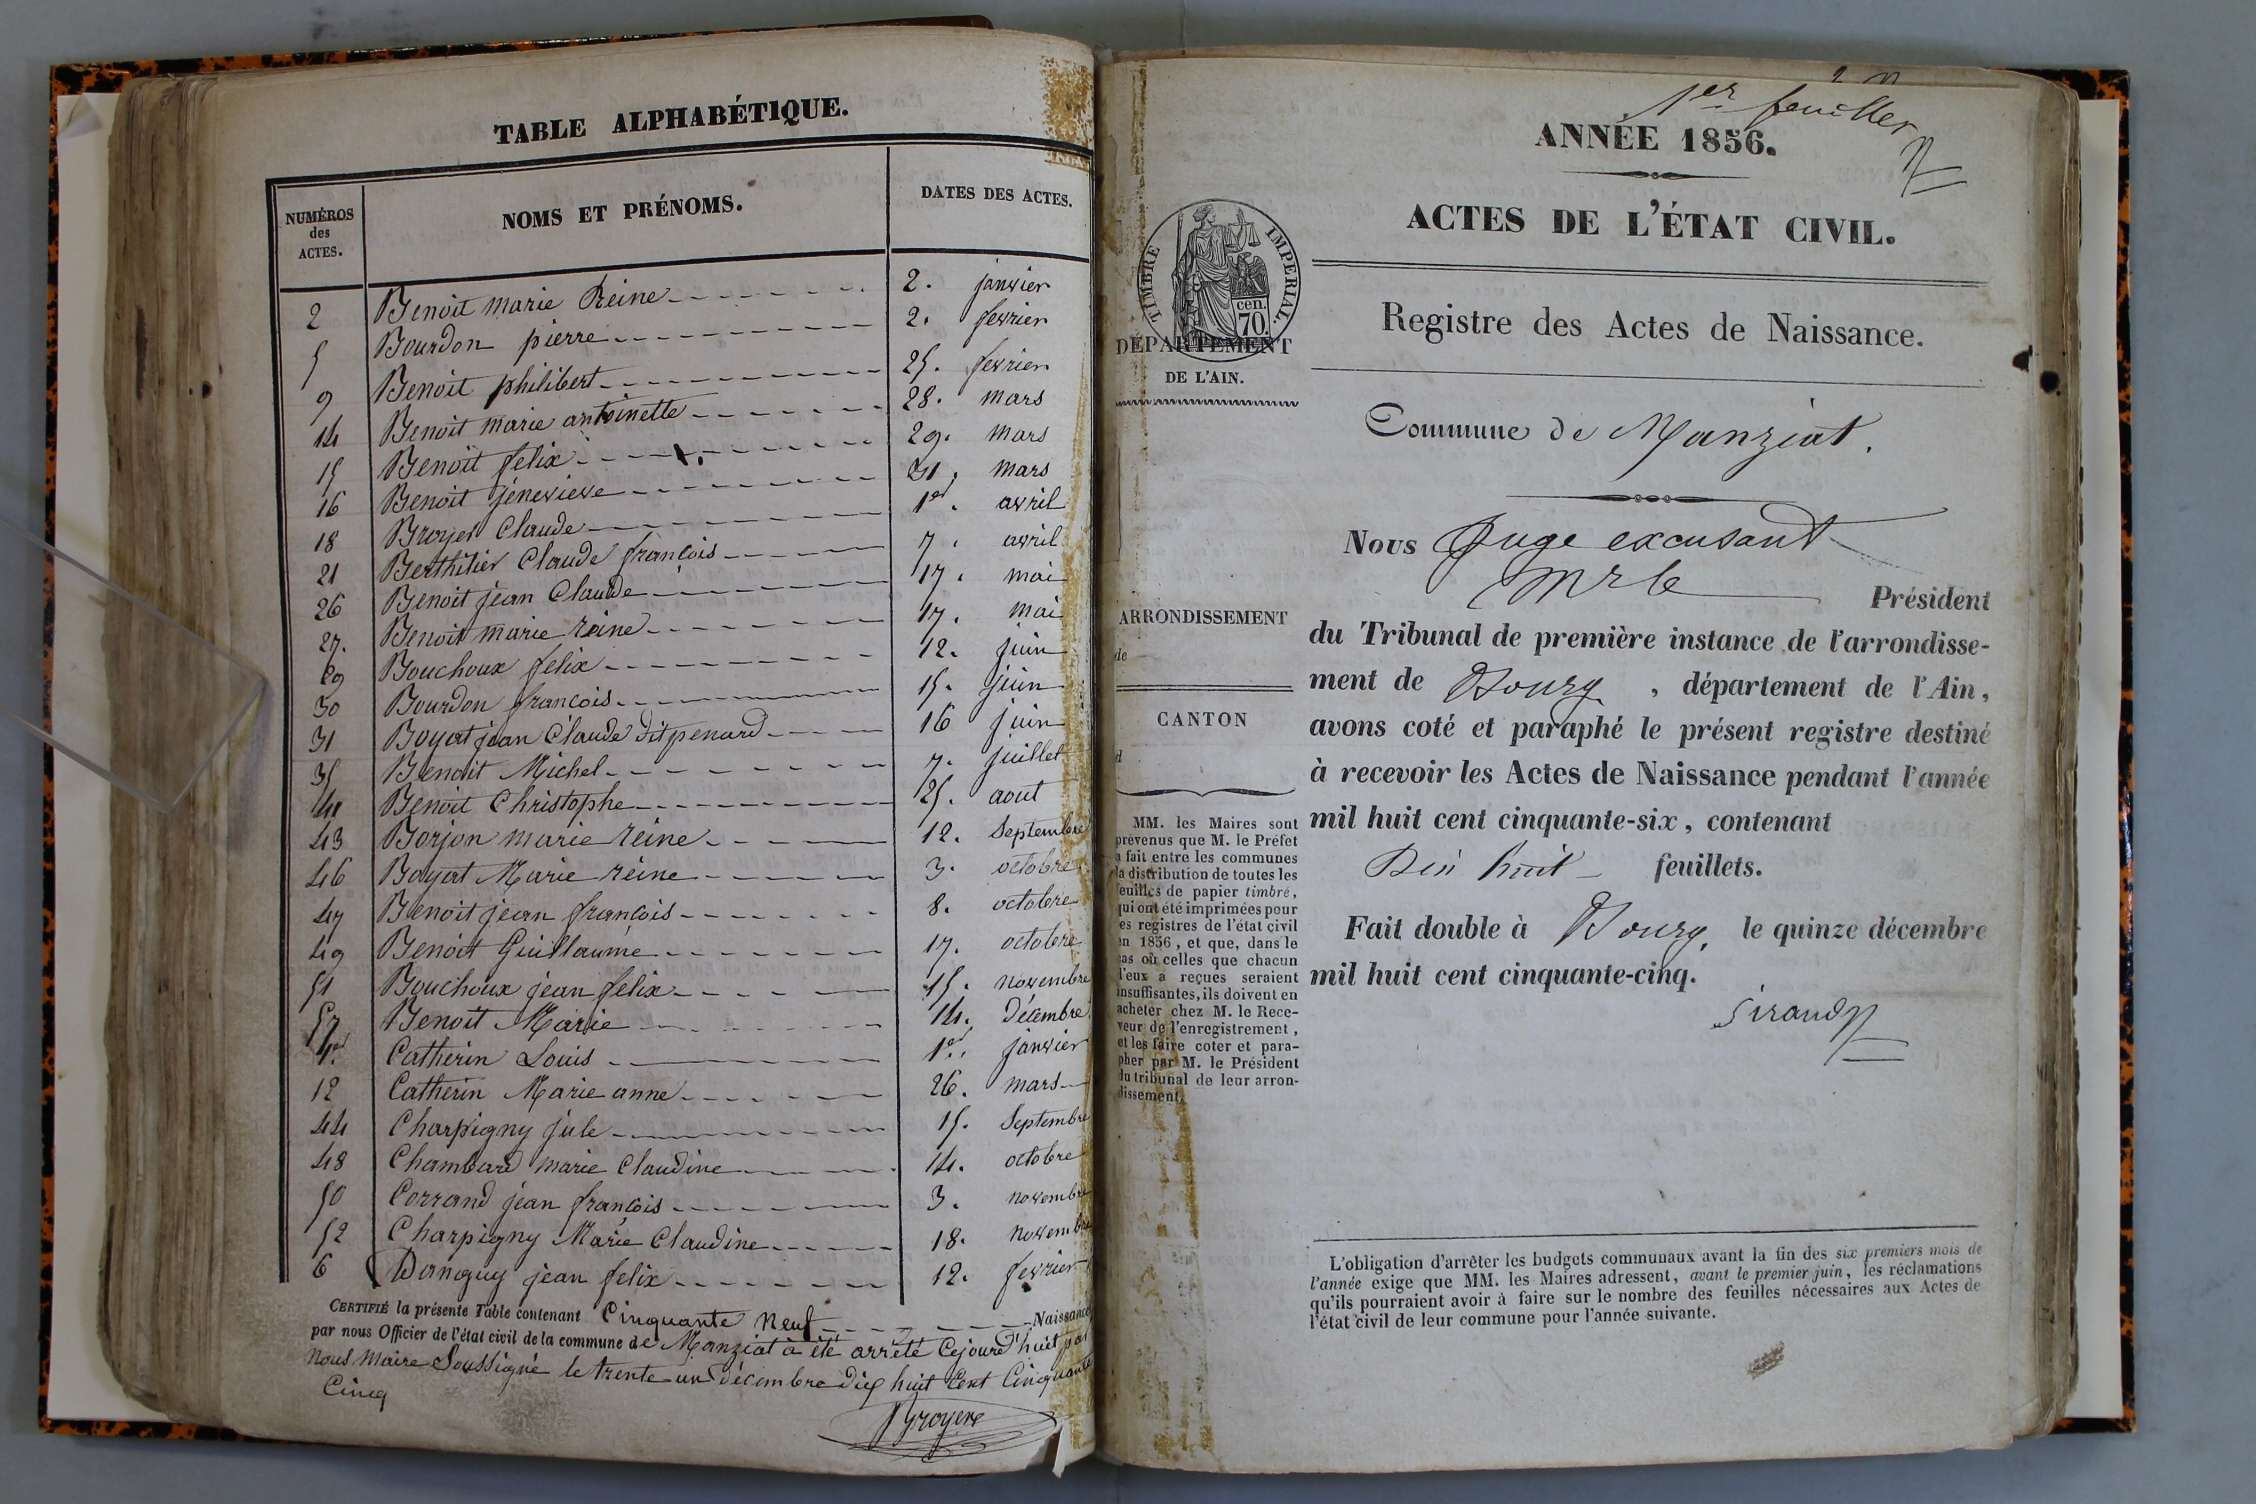 TABLE ALPHABÉTIQUE.
NUMÉROS des ACTES. NOMS ET PRÉNOMS. DATES DES ACTES.
2 Benoit marie Reine 2. janvier
5 Bourdon pierre 2. fevrier
9 Benoit philibert 25. fevrier
14 Benoit marie antoinette 28. mars
15 Benoit felix 29. mars
16 Benoit jenevieve 31. mars
18 Broyer Claude 1er. avril
21 Berthilier Claude françois 7. avril
26 Benoit jean Claude 17. mai
27. Benoit marie reine 17. mai
29 Bouchoux felix 12. juin
30 Bourdon françois 15. juin
31 Boyat jean Claude dit penard 16 juin
35 Benoit Michel 7. juillet
41 Benoit Christophe 25. aout
43 Borjon marie reine 12. Septembre
46 Boyat Marie reine 3. octobre
47 Benoit jean françois 8. octobre
49 Benoit Guillaume 17. octobre
51 Bouchoux jean felix 15. novembre
57 Benoit Marie 14. décembre
1er. Catherin Louis 1er. janvier
12 Catherin Marie anne 26. mars
44 Charpigny jule 15. Septembre
48 Chambard marie Claudine 14. octobre
50 Corrand jean françois 3. novembre
52 Charpigny Marie Claudine 18. novembre
6 Danguy jean felix 12. fevrier
CERTIFIÉ la présente Table contenant Cinquante Neuf Naissance
par nous Officier de l'état civil de la commune de Manziat à été arrété Cejourd'huit par
nous Maire Soussigné le trente un décembre dix huit Cent Cinquante
Cinq
Broyere
1er feuillet
ANNÉE 1856.
ACTES DE L'ÉTAT CIVIL.
TIMBRE IMPERIAL.
cen. 70.
DÉPARTEMENT
DE L'AIN.
Registre des Actes de Naissance.
Commune de Manziat.
Nous Juge excusant
Mr le Président
du Tribunal de première instance de l'arrondisse-
ment de Bourg, département de l'Ain,
avons coté et paraphé le présent registre destiné
à recevoir les Actes de Naissance pendant l'année
mil huit cent cinquante-six, contenant
Dix huit feuillets.
Fait double à Bourg, le quinze décembre
mil huit cent cinquante-cinq.
Sirand
ARRONDISSEMENT
de
CANTON
d
MM. les Maires sont
prévenus que M. le Préfet
a fait entre les communes
la distribution de toutes les
feuilles de papier timbré,
qui ont été imprimées pour
les registres de l'état civil
en 1856, et que, dans le
cas où celles que chacun
d'eux a reçues seraient
insuffisantes, ils doivent en
acheter chez M. le Rece-
veur de l'enregistrement,
et les faire coter et para-
pher par M. le Président
du tribunal de leur arron-
dissement.
L'obligation d'arrêter les budgets communaux avant la fin des six premiers mois de
l'année exige que MM. les Maires adressent, avant le premier juin, les réclamations
qu'ils pourraient avoir à faire sur le nombre des feuilles nécessaires aux Actes de
l'état civil de leur commune pour l'année suivante.